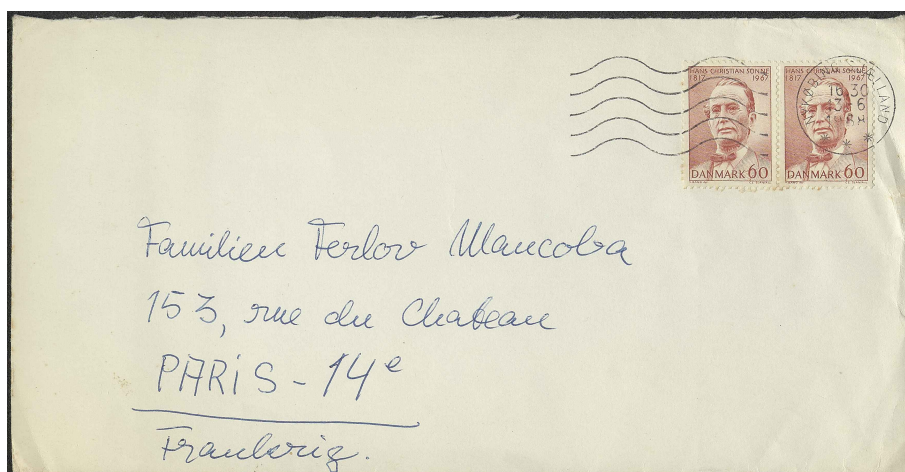 HANS CHRISTIAN SONNE
1817 1967
DANMARK 60
HANS CHRISTIAN SONNE
1817 1967
DANMARK 60
16.30
Familien Ferlov Mancoba
153, rue du Chateau
PARIS - 14e
Frankrig.